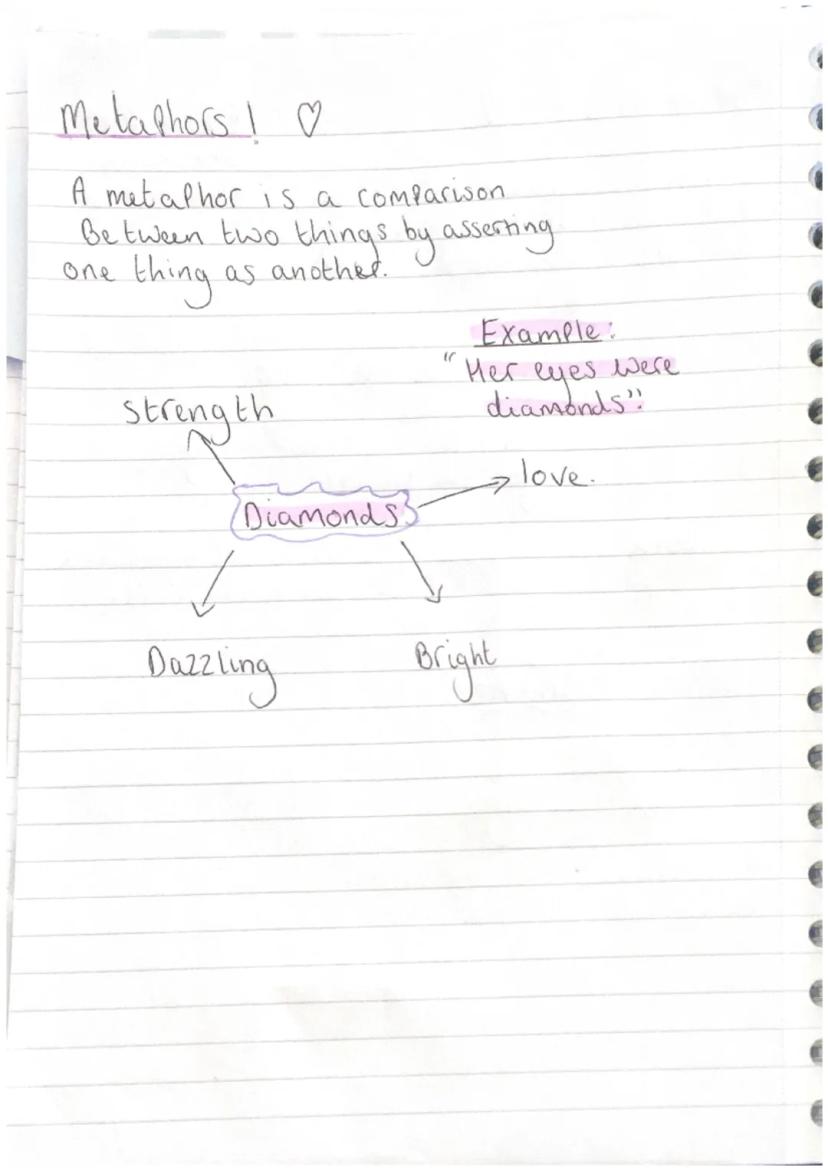 Metaphors! ♡
A metaphor is a comparison
Between two things by asserting
one thing as another.
Example:
"Her eyes were
diamonds".
strength
love.
Diamonds
Dazzling
Bright